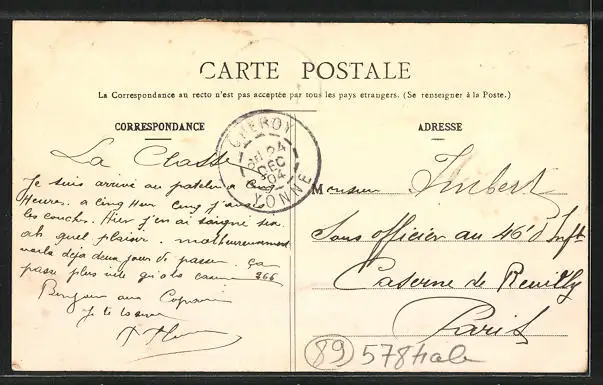 CARTE POSTALE
La Correspondance au recto n'est pas acceptée par tous les pays etrangers. (Se renseigner à la Poste.)
CORRESPONDANCE
ADRESSE
CHEROY
24
DEC
04
YONNE
La Classe
Je suis arrivé au patelin a cinq
Heures. a cinq Heur cinq j'avais
les couches. Hier j'en ai saigné
ah quel plaisir. malheureusement
voila deja deux jour de passer. ça
passe plus vite qu'a la 266
Bonjour aux Copains
Je te
Monsieur Imbert
Sous officier au 46e d'Infie
Caserne de Reuilly
Paris
89 578